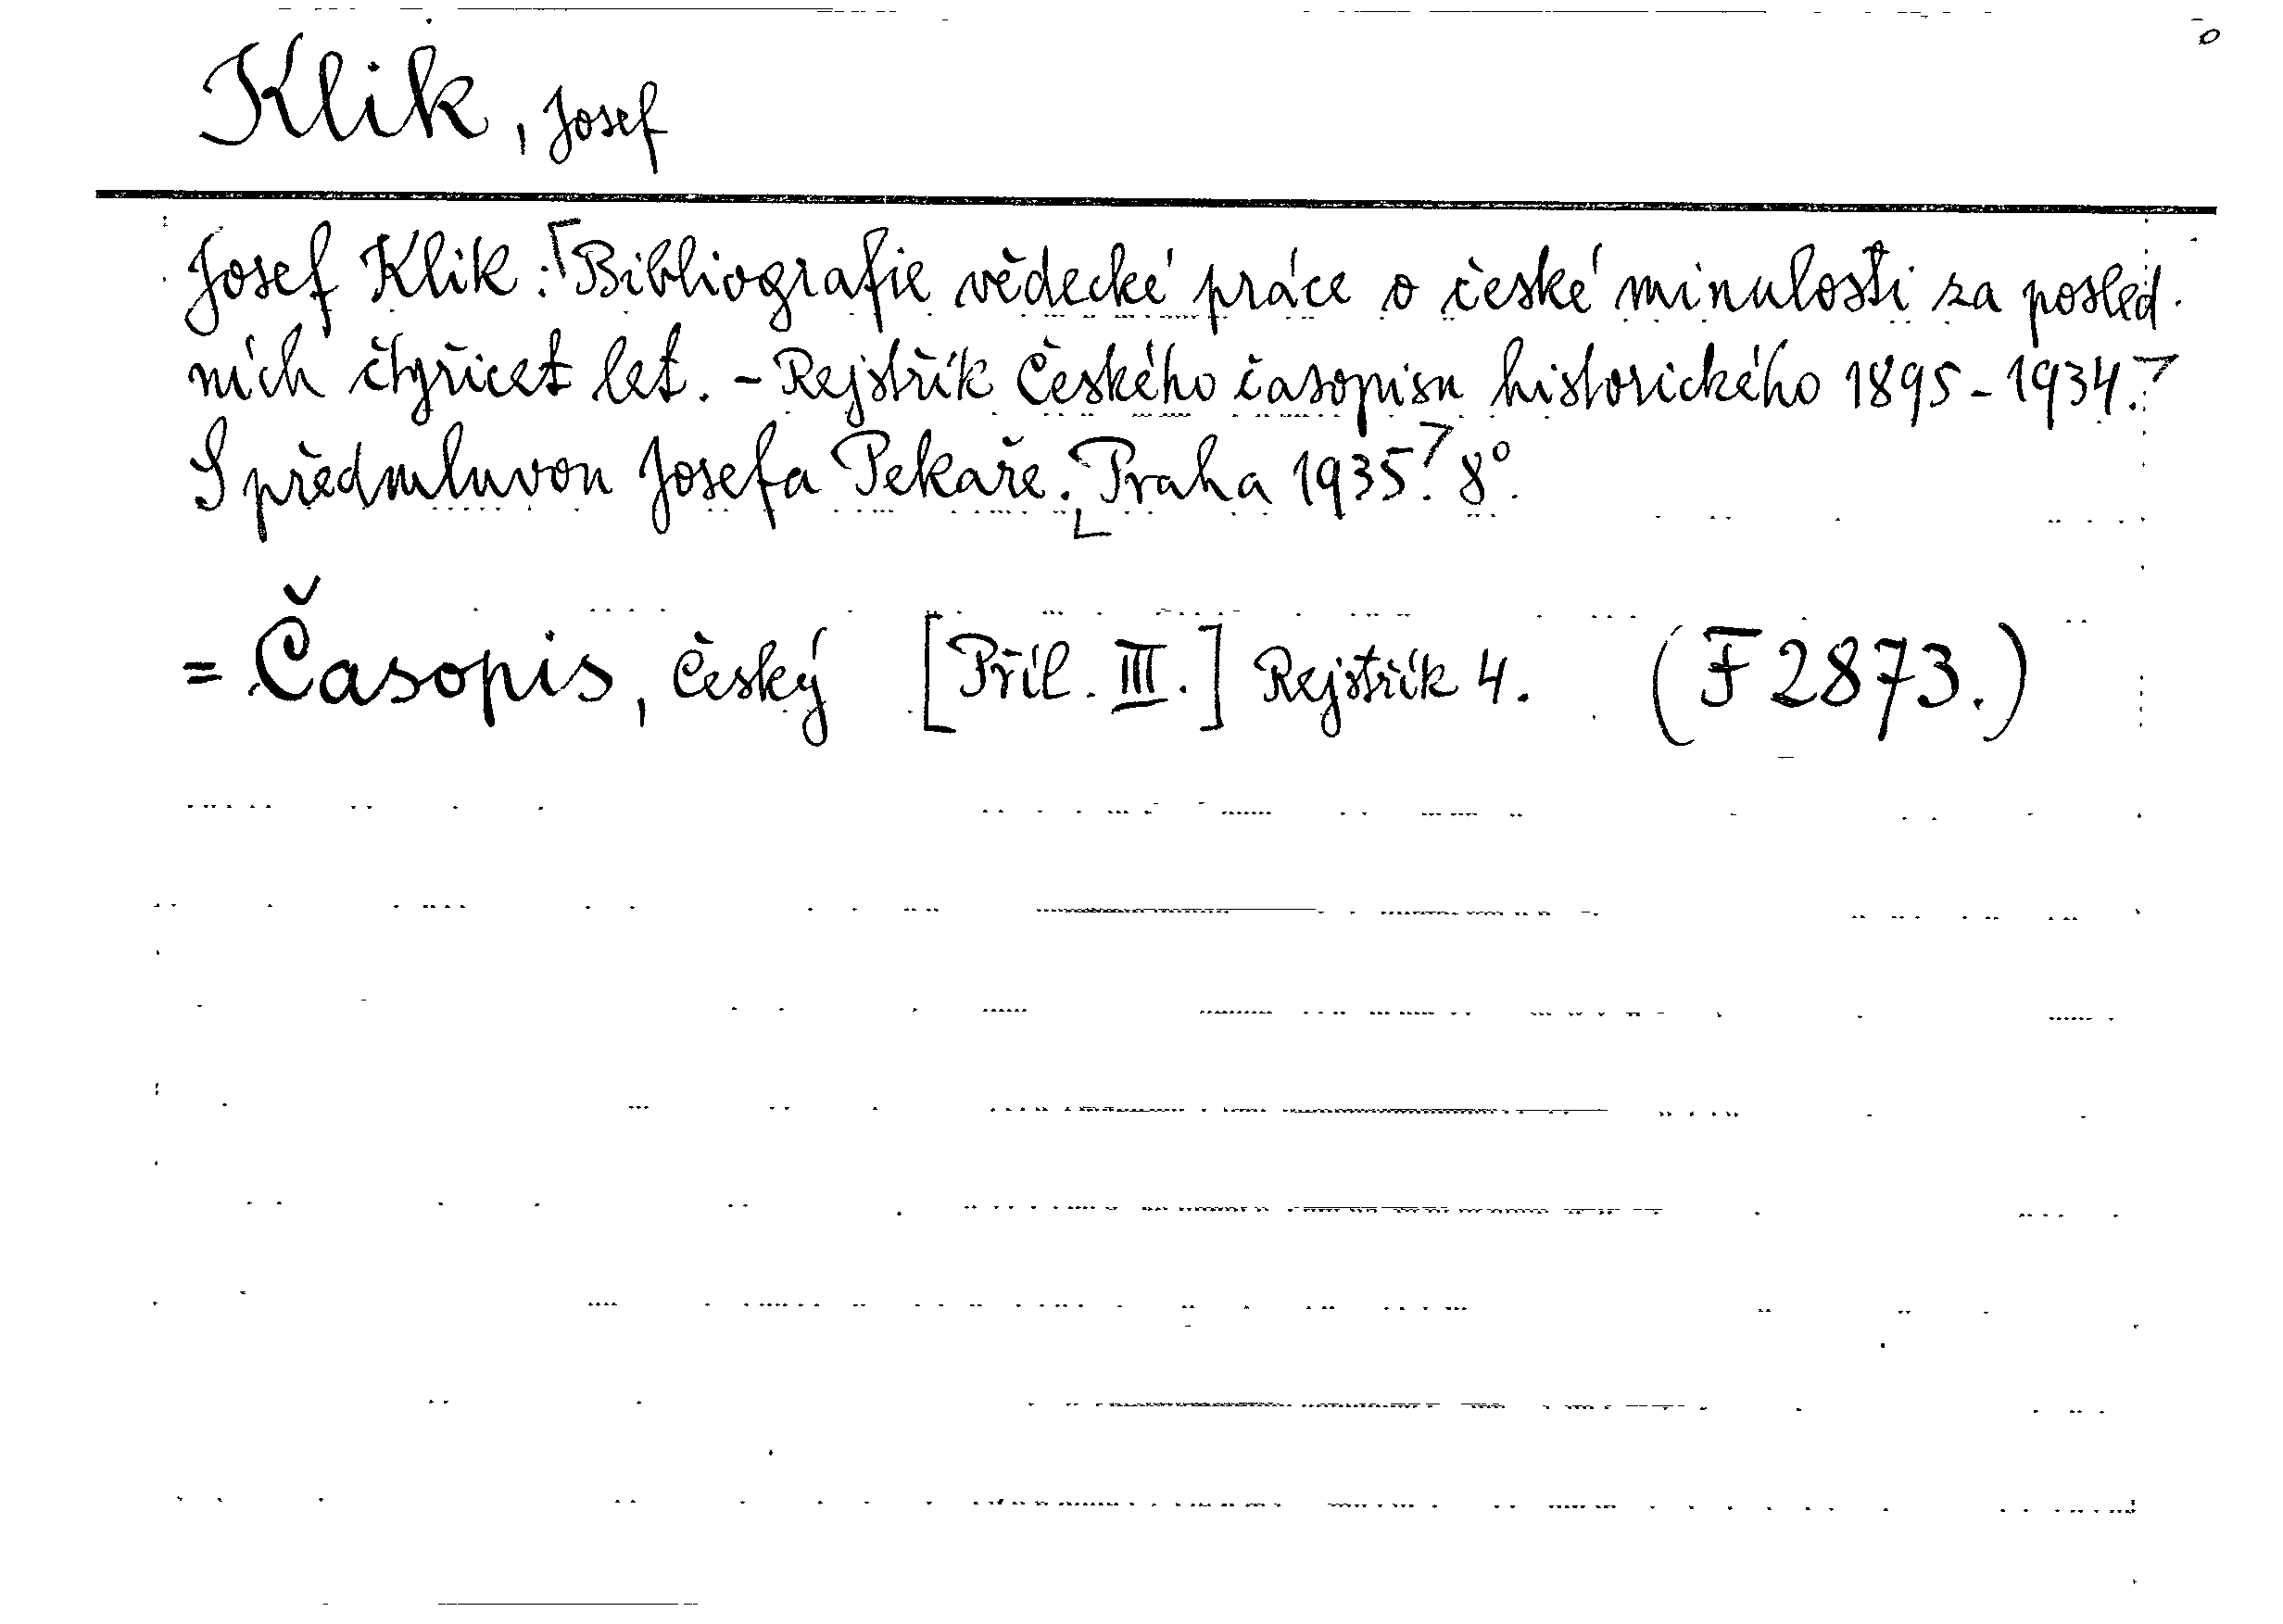 Klik, Josef
Josef Klik: ⌈Bibliografie vědecké práce o české minulosti za posled-
ních čtyřicet let. - Rejstřík Českého časopisu historického 1895-1934.⌉
S předmluvou Josefa Pekaře. ⌊Praha 1935.⌉ 8°.
= Časopis, český [Příl. III.] Rejstřík 4. (F 2873.)